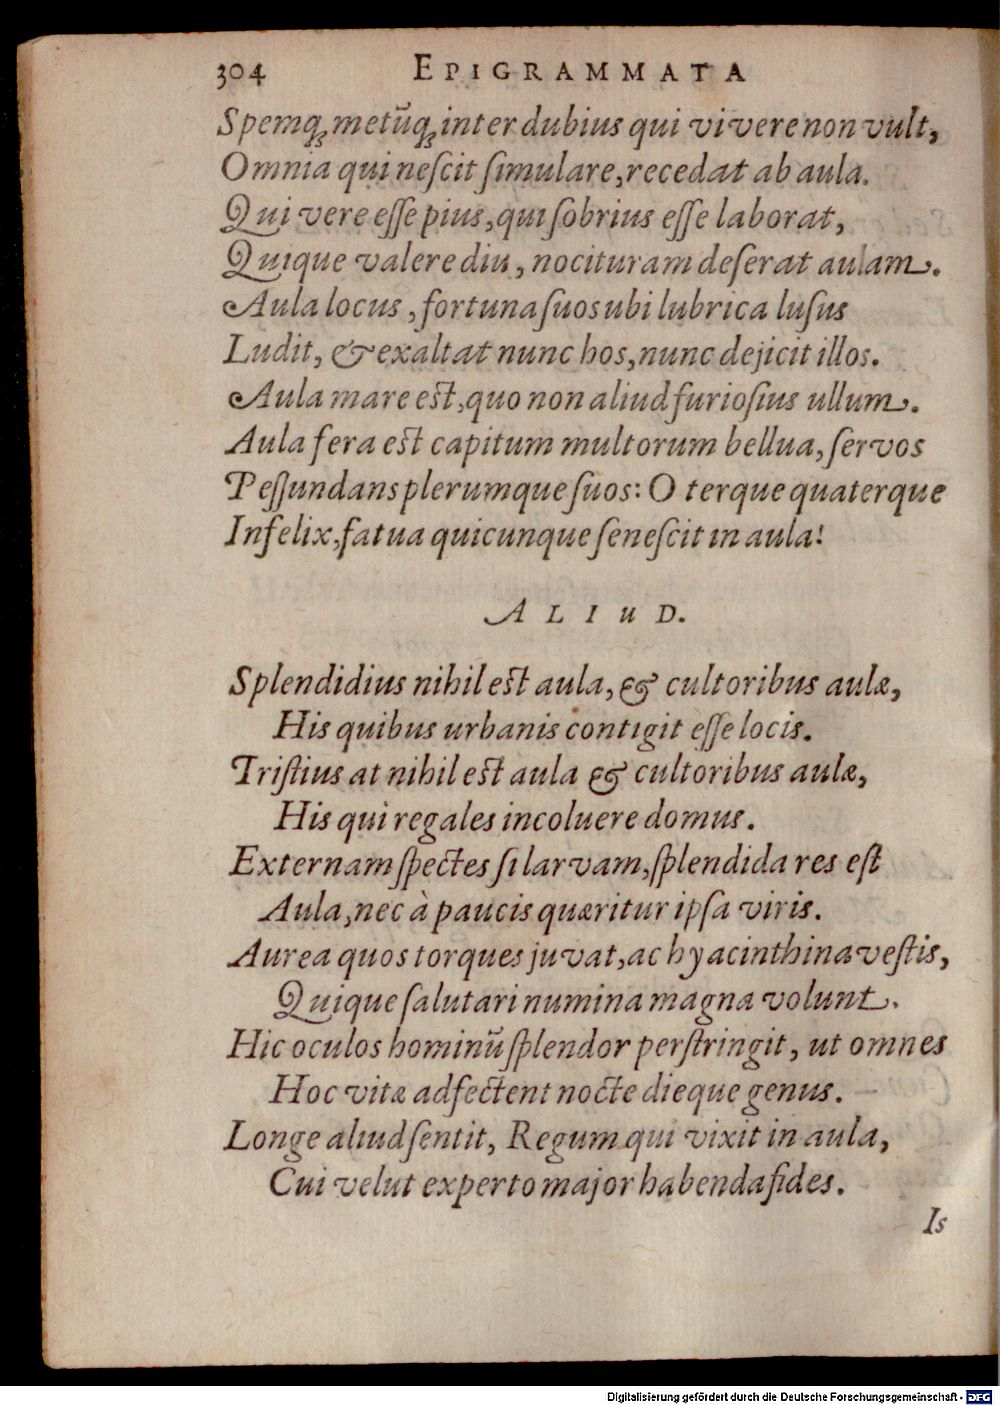 304 EPIGRAMMATA
Spemq́ꝫ metũq́ꝫ inter dubius qui vivere non vult,
Omnia qui neſcit ſimulare, recedat ab aula.
Qui vere eſſe pius, qui ſobrius eſſe laborat,
Quique valere diu, nocituram deſerat aulam.
Aula locus, fortuna ſuos ubi lubrica luſus
Ludit, & exaltat nunc hos, nunc dejicit illos.
Aula mare eſt, quo non aliud furioſius ullum.
Aula fera eſt capitum multorum bellua, ſervos
Peſſundans plerumque ſuos: O terque quaterque
Infelix, fatua quicunque ſeneſcit in aula!
ALIuD.
Splendidius nihil eſt aula, & cultoribus aulæ,
His quibus urbanis contigit eſſe locis.
Triſtius at nihil eſt aula & cultoribus aulæ,
His qui regales incoluere domus.
Externam ſpectes ſi larvam, ſplendida res eſt
Aula, nec à paucis quæritur ipſa viris.
Aurea quos torques juvat, ac hyacinthina veſtis,
Quique ſalutari numina magna volunt.
Hic oculos hominũ ſplendor perſtringit, ut omnes
Hoc vitæ adfectent nocte dieque genus.
Longe aliud ſentit, Regum qui vixit in aula,
Cui velut experto major habenda fides.
Is
Digitalisierung gefördert durch die Deutsche Forschungsgemeinschaft - DFG